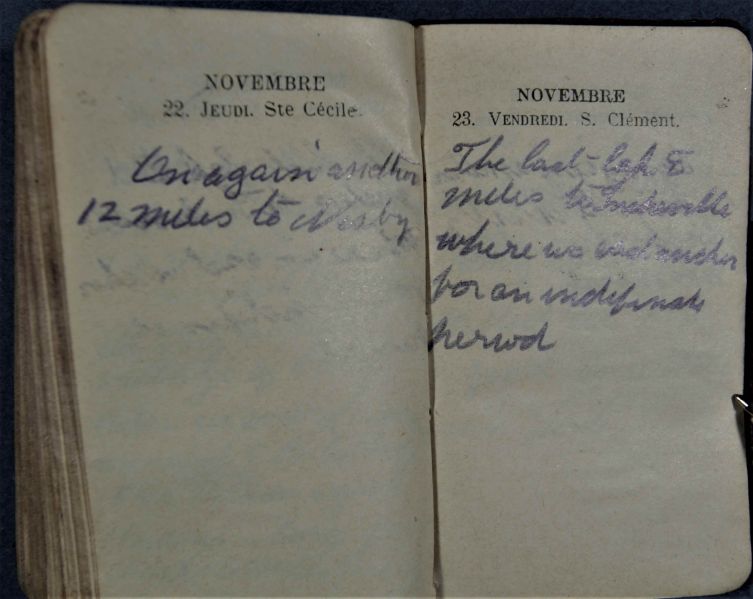 NOVEMBRE
22. JEUDI. Ste Cécile.
On again another
12 miles to
NOVEMBRE
23. VENDREDI. S. Clément.
The last lap 8
miles to
where we cast anchor
for an indefinate
period